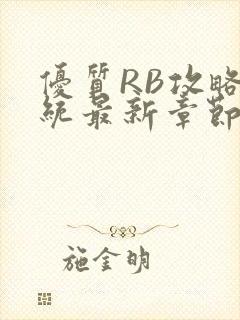 優質RB攻略
統最新章節
施金明